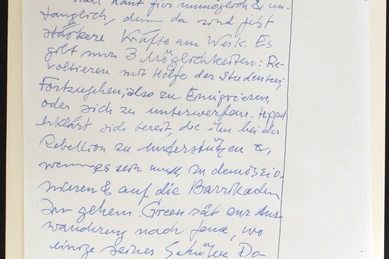 man kaut für unmöglich & un-
tauglich, denn da sind jetzt
stärkere Kräfte am Werk. Es
gibt nur 3 Möglichkeiten: Re-
voltieren mit Hilfe der Studenten,
Fortzugehen, also zu Emigrieren,
oder sich zu unterwerfen.
erklärt sich bereit, die ihm bei der
Rebellion zu unterstützen &,
wenn es sein muß, zu demissio-
nieren & auf die Barrikaden
zu gehen. Green rät zur Aus-
wanderung nach Jena, wo
einige seiner Schüler Do-